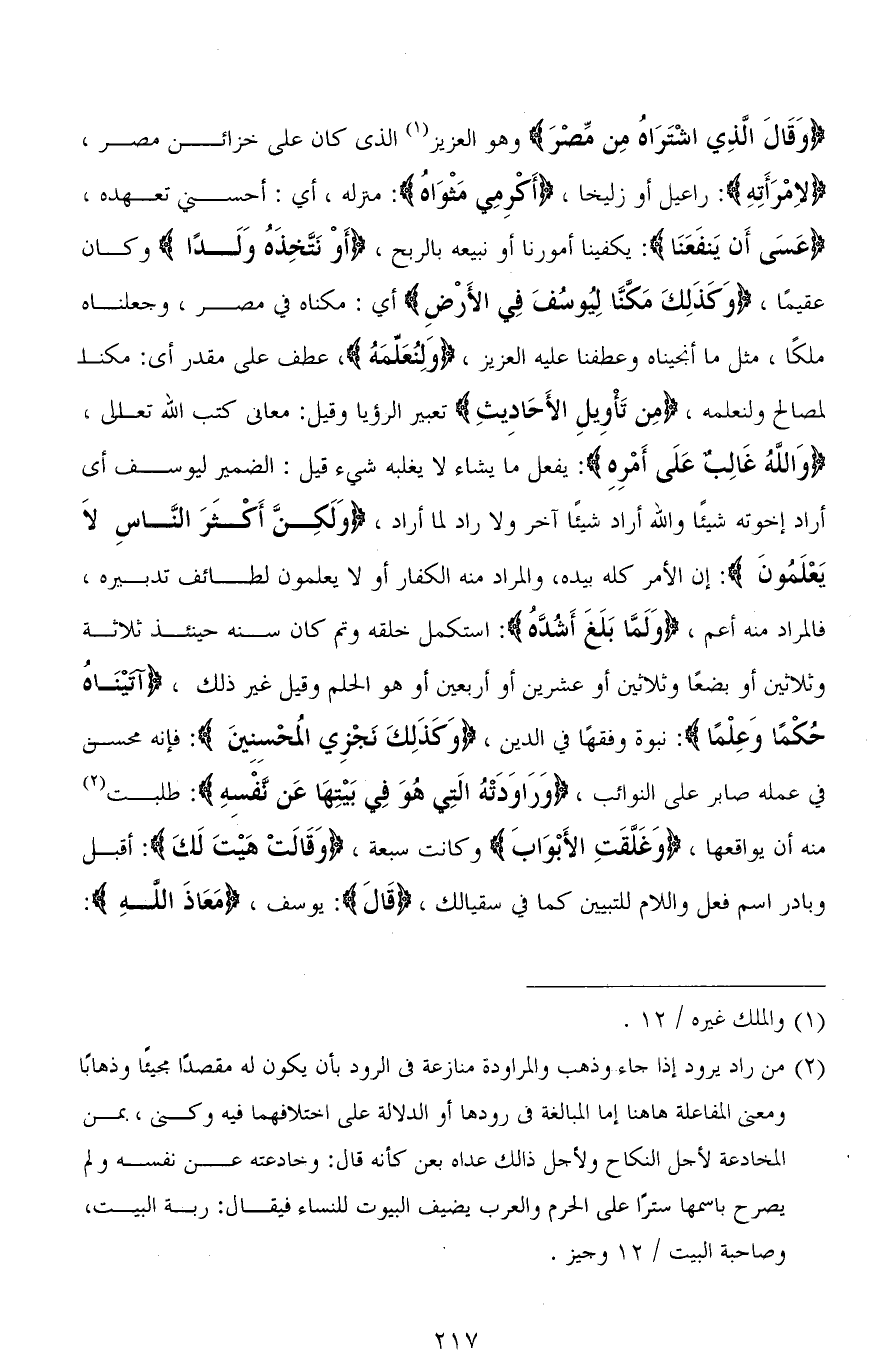 ﴿وَقَالَ الَّذِي اشْتَرَاهُ مِن مِّصْرَ﴾ وهو العزيز(١) الذى كان على خزائن مصر ،
﴿لامْرَأَتِهِ﴾: راعيل أو زليخا ، ﴿أَكْرِمِي مَثْوَاهُ﴾: منزله ، أي : أحسني تعهده ،
﴿عَسَى أَن يَنفَعَنَا﴾: يكفينا أمورنا أو نبيعه بالربح ، ﴿أَوْ نَتَّخِذَهُ وَلَدًا ﴾ وكان
عقيمًا ، ﴿وَكَذَلِكَ مَكَّنَّا لِيُوسُفَ فِي الأَرْضِ﴾ أي : مكناه في مصر ، وجعلناه
ملكًا ، مثل ما أنجيناه وعطفنا عليه العزيز ، ﴿وَلِنُعَلِّمَهُ ﴾، عطف على مقدر أى: مكنا
لمصالح ولنعلمه ، ﴿مِن تَأْوِيلِ الأَحَادِيثِ﴾ تعبير الرؤيا وقيل: معانى كتب الله تعالى ،
﴿وَاللَّهُ غَالِبٌ عَلَى أَمْرِهِ﴾: يفعل ما يشاء لا يغلبه شيء قيل : الضمير ليوسف أى
أراد إخوته شيئًا والله أراد شيئًا آخر ولا راد لما أراد ، ﴿وَلَكِنَّ أَكْثَرَ النَّاسِ لاَ
يَعْلَمُونَ ﴾: إن الأمر كله بيده، والمراد منه الكفار أو لا يعلمون لطائف تدبيره ،
فالمراد منه أعم ، ﴿وَلَمَّا بَلَغَ أَشُدَّهُ﴾: استكمل خلقه وتم كان سنه حينئذ ثلاثة
وثلاثين أو بضعًا وثلاثين أو عشرين أو أربعين أو هو الحلم وقيل غير ذلك ، ﴿آتَيْنَاهُ
حُكْمًا وَعِلْمًا ﴾: نبوة وفقهًا في الدين ، ﴿وَكَذَلِكَ نَجْزِي الْمُحْسِنِينَ ﴾: فإنه محسن
في عمله صابر على النوائب ، ﴿وَرَاوَدَتْهُ الَتِي هُوَ فِي بَيْتِهَا عَن نَّفْسِهِ﴾: طلبت(٢)
منه أن يواقعها ، ﴿وَغَلَّقَتِ الأَبْوَابَ﴾ وكانت سبعة ، ﴿وَقَالَتْ هَيْتَ لَكَ﴾: أقبل
وبادر اسم فعل واللام للتبيين كما في سقيالك ، ﴿قَالَ﴾: يوسف ، ﴿مَعَاذَ اللَّهِ ﴾:
(١) والملك غيره / ١٢ .
(٢) من راد يرود إذا جاء وذهب والمراودة منازعة فى الرود بأن يكون له مقصدًا مجيئًا وذهابًا
ومعنى المفاعلة هاهنا إما المبالغة فى رودها أو الدلالة على اختلافهما فيه وكنى ، بمن
المخادعة لأجل النكاح ولأجل ذالك عداه بعن كأنه قال: وخادعته عن نفسه و لم
يصرح باسمها سترًا على الحرم والعرب يضيف البيوت للنساء فيقال: ربة البيت،
وصاحبة البيت / ١٢ وجيز .
٢١٧